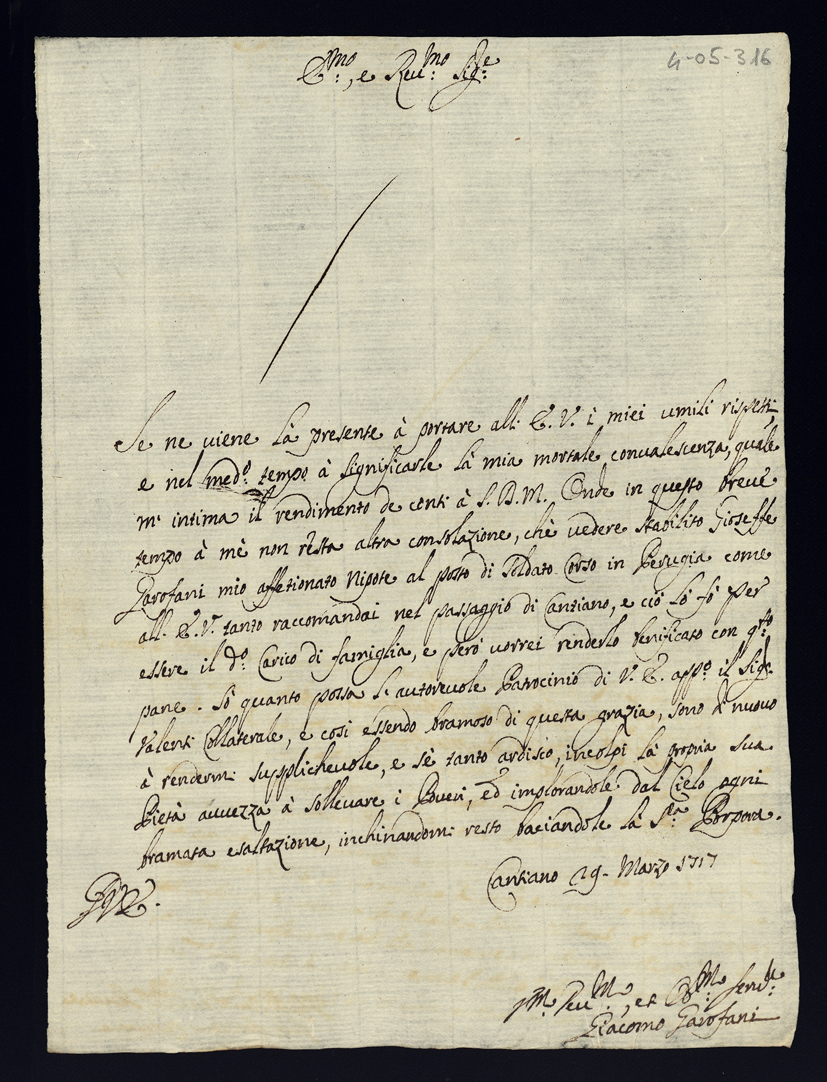 4-05-316
E.mo, e Reu.mo Sig.e
Se ne uiene là presente à portare all: E. V. i miei umili rispetti,
e nel med.o tempo à significarle là mia mortale conualescenza, quale
m' intima il rendimento de conti à S. D. M. Onde in questo breue
tempo à mè non resta altra consolazione, chè uedere stabilito Gioseffe
Garofani mio affetionato Nipote al posto di Soldato Corso in Perugia come
all: E. V. tanto raccomandai nel passaggio di Cantiano, e ciò lò fò per
essere il d.o Carico di famiglia, e però uorrei renderlo benificato con q.sto
pane. Sò quanto possa l: autoreuole Patrocinio di V. E. app.o il Sig.
Valenti Collaterale, e così essendo bramoso di questa grazia, sono di nuouo
à rendermi supplicheuole, e sè tanto ardisco, incolpi là propria sua
Pietà auuezza à solleuare i Poueri, ed implorandole dal Cielo ogni
bramata esaltazione, inchinandomi resto baciandole là S.ra Porpora.
Cantiano 29. Marzo 1717
Giacomo Garofani